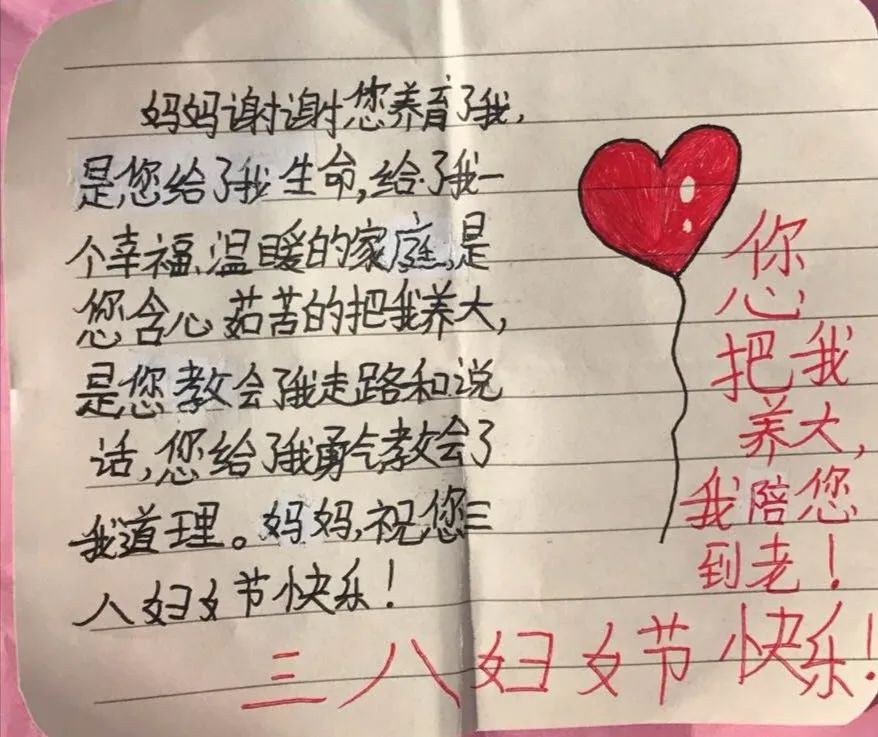 妈妈谢谢您养育了我,
是您给了我生命,给了我一
个幸福、温暖的家庭,是
您含心茹苦的把我养大,
是您教会了我走路和说
话,您给了我勇气教会了
我道理。妈妈,祝您三
八妇女节快乐!
您
把我
养大,
我陪您
到老!
三八妇女节快乐!